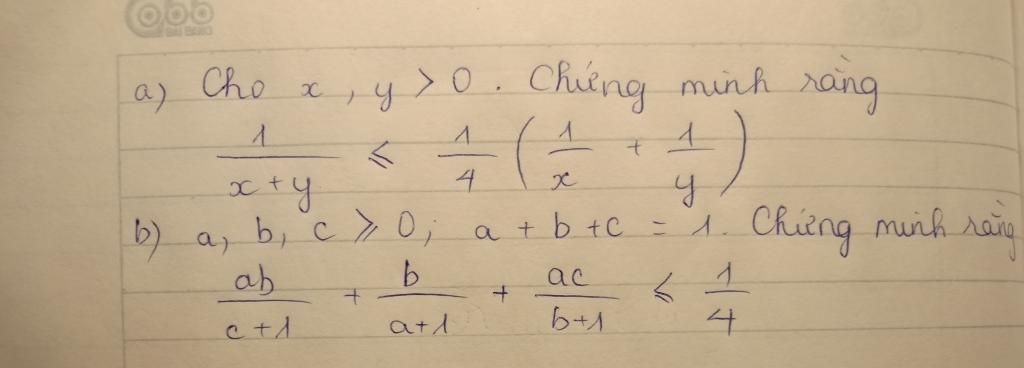 a) Cho x, y > 0. Chứng minh rằng
1/(x+y) ⩽ 1/4 (1/x + 1/y)
b) a, b, c ⩾ 0; a + b + c = 1. Chứng minh rằng
ab/(c+1) + b/(a+1) + ac/(b+1) ⩽ 1/4